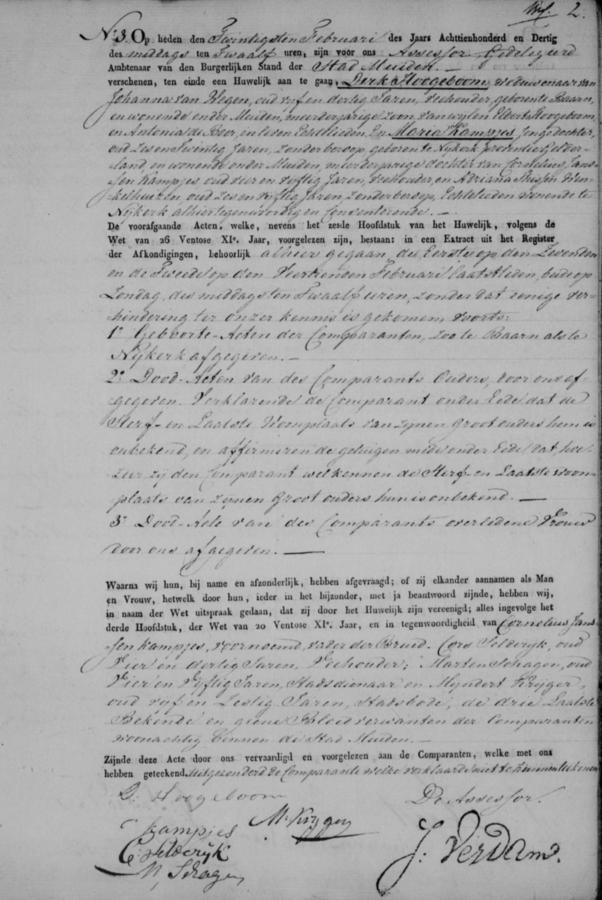 2.
N:3. Op heden den Twintigsten Februari des Jaars Achttienhonderd en Dertig
des middags ten Twaalf uren, zijn voor ons Assessor Gedelegeerd
Ambtenaar van den Burgerlijken Stand der Stad Muiden.
verschenen, ten einde een Huwelijk aan te gaan, Derk Hoogeboom, weduwenaar van
Johanna van Hegen, oud vijf en dertig Jaren, veehouder, geboren te Baarn,
en wonende onder Muiden, meerderjarige zoon van wijlen Elbert Hoogeboom,
en Antonia de Boer, in leven Echtelieden, En Maria Kampjes Jonge dochter,
oud Zes en Twintig Jaren, Zonder beroep, geboren te Nijkerk provintie Gelder-
land en wonende onder Muiden, meerderjarige dochter van Cornelius Jans-
sen Kampjes oud vier en vijftig Jaren, veehouder, en Adriana
oud Zes en vijftig Jaren Zonder beroep, Echtelieden wonende te
Nijkerk alhier tegenwoordig en Consenterende.
De voorafgaande Acten, welke, nevens het zesde Hoofdstuk van het Huwelijk, volgens de
Wet van 26 Ventose XIe. Jaar, voorgelezen zijn, bestaan: in een Extract uit het Register
der Afkondigingen, behoorlijk alhier gegaan, de Eerste op den Zevenden
en de Tweede op den Veertienden Februari laatstleden, beide op
Zondag, des middags ten Twaalf uren, zonder dat eenige ver-
hindering ter onzer kennis is gekomen, voorts:
1e Geboorte-Acten der Comparanten, zoo te Baarn als te
Nijkerk afgegeven.
2e Dood-Acten van des Comparants Ouders, door ons af-
gegeven. Verklarende de Comparant onder Eede dat de
Sterf- en Laatste Woonplaats van zijnen Groot ouders hem is
onbekend, en affirmeren de getuigen mede onder Eede dat, hoe-
zeer zij den Comparant wel kennen de Sterf- en Laatste woon-
plaats van zijnen Groot ouders hun is onbekend.
3e Dood-Acte van des Comparants overledene Vrouw
door ons afgegeven.
Waarna wij hun, bij name en afzonderlijk, hebben afgevraagd; of zij elkander aannamen als Man
en Vrouw, hetwelk door hun, ieder in het bijzonder, met ja beantwoord zijnde, hebben wij,
in naam der Wet uitspraak gedaan, dat zij door het Huwelijk zijn vereenigd; alles ingevolge het
derde Hoofdstuk, der Wet van 20 Ventose XIe. Jaar, en in tegenwoordigheid van Cornelius Jans-
sen Kampjes, voornoemd, vader der Bruid. Cors Selderijk, oud
Vier en dertig Jaren, Veehouder; Marten Schagen, oud
Vier en Vijftig Jaren, Stadsdienaar en Myndert Krijger,
oud vijf en Zestig Jaren, Stadsbode, de drie Laatste
Bekende en geene Bloedverwanten der Comparanten
woonachtig binnen de Stad Muiden.
Zijnde deze Acte door ons vervaardigd en voorgelezen aan de Comparanten, welke met ons
hebben geteekend, uitgezonderd de Comparante welke verklaarde niet te kunnen teekenen
D: Hoogeboom
De Assessor.
Kampjes
M: Kryger
C: Selderyk
J: Verdam.
M, Schagen